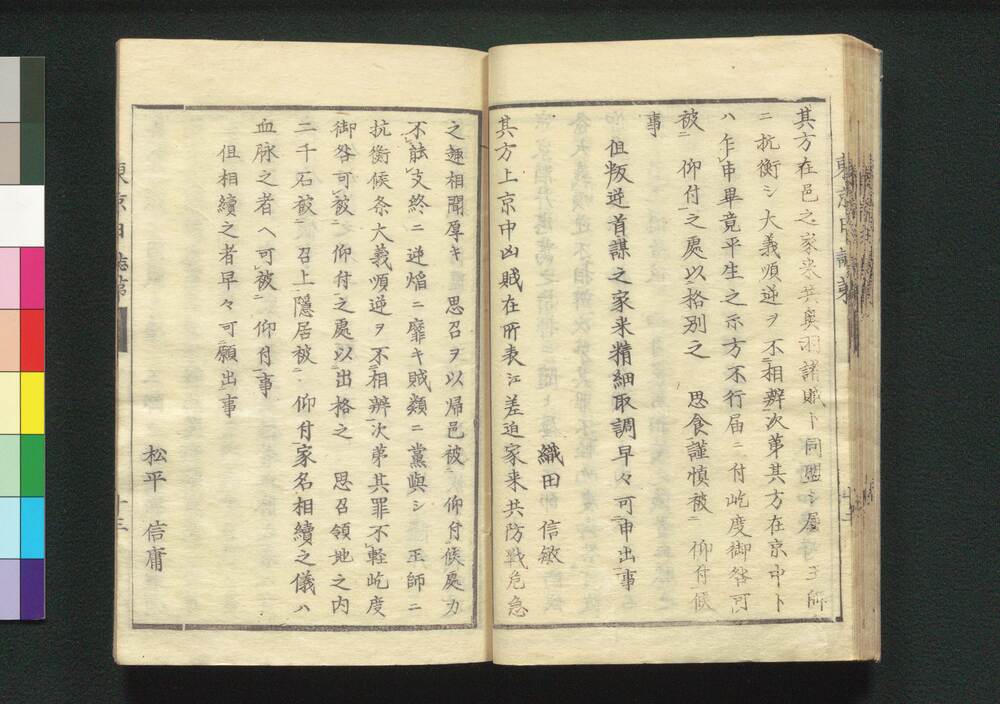 其方在邑之家来共奥羽諸賊ト同盟シ屡　王師
ニ抗衡シ大義順逆ヲ不相辨次第其方在京中ト
ハ乍申畢竟平生之示方不行届ニ付屹度御咎可
被　仰付之處以格別之　思食謹慎被　仰付候
事
但叛逆首謀之家来精細取調早々可申出事
織田信敏
其方上京中凶賊在所表江差迫家来共防戰危急
之趣相聞厚キ　思召ヲ以帰邑被　仰付候處力
不能支終ニ逆焰ニ靡キ賊類ニ黨與シ　王師ニ
抗衡候条大義順逆ヲ不相辨次第其罪不軽屹度
御咎可被　仰付之處以出格之　思召領地之内
二千石被　召上隠居被　仰付家名相續之儀ハ
血脉之者ヘ可被　仰付事
但相續之者早々可願出事
松平　信庸
東京日誌第
十三